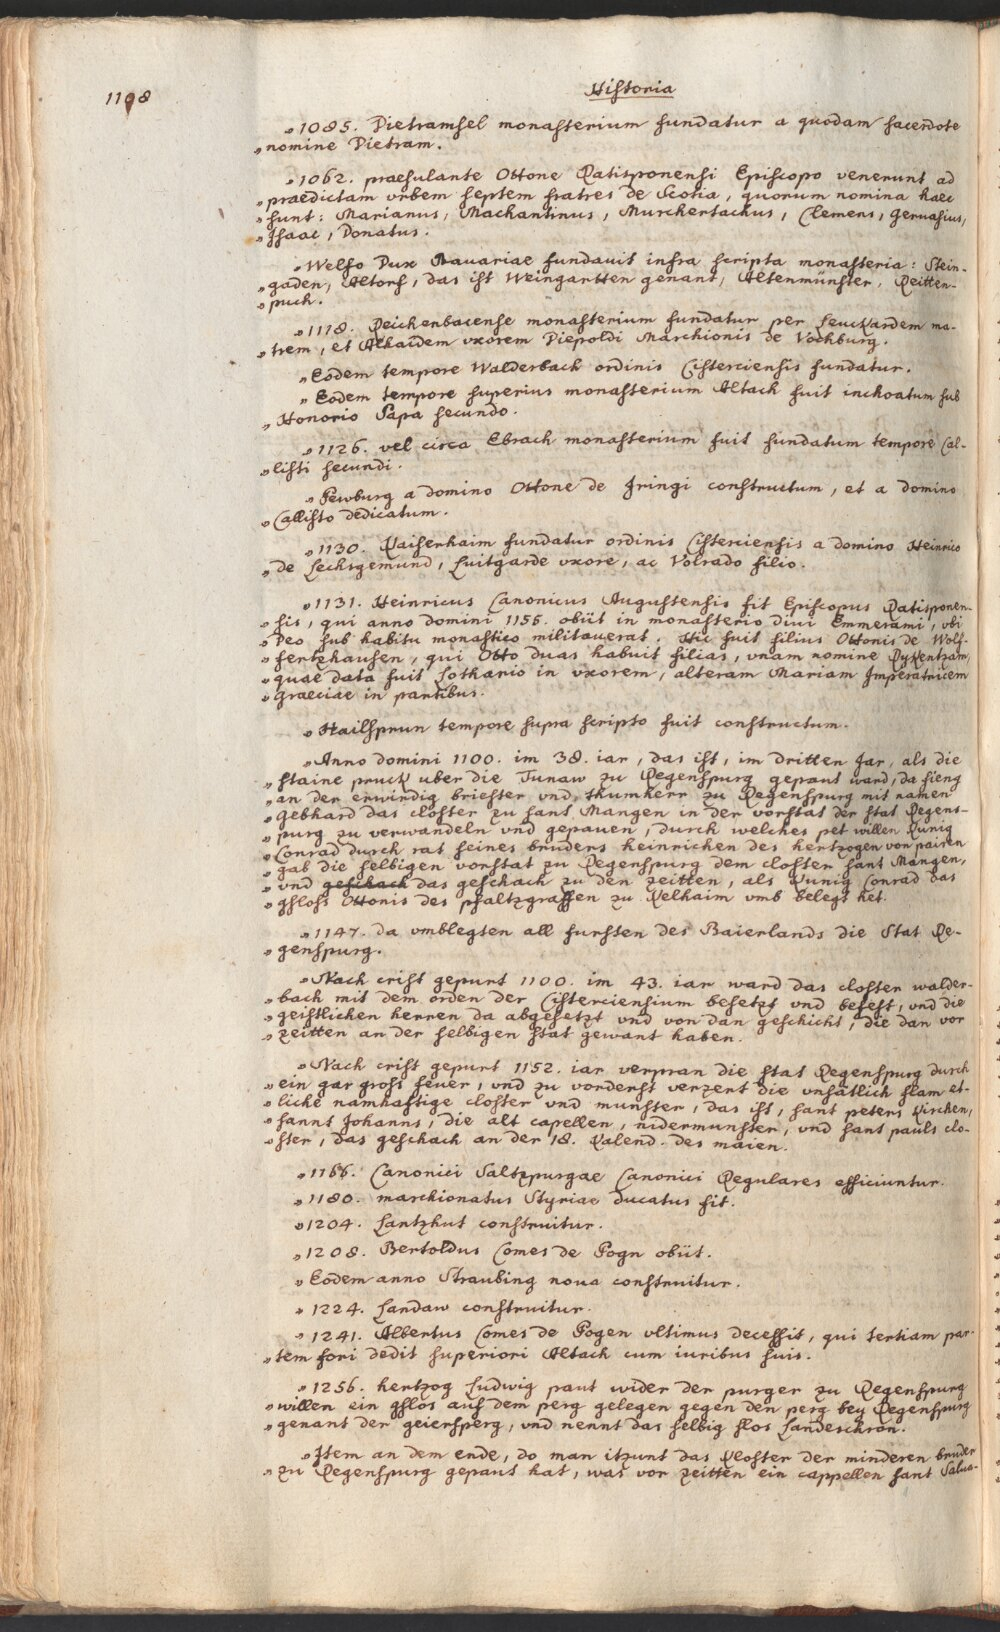 1198
Historia
„1085. Dietramsel monasterium fundatur a quodam sacerdote
„nomine Dietram.
„1062. praesulante Ottone Ratisponensi Episcopo venerunt ad
„praedictam vrbem septem fratres de Scotia, quorum nomina haec
„sunt: Marianus, Machantinus, Murchertachus, Clemens, Gervasius,
„Isaac, Donatus.
„Welfo Dux Bauariae fundauit infra scripta monasteria: Stein-
„gaden, Altorf, das ist Weingartten genant, Altenmünster, Reitten-
„puch.
„1118. Reichenbacense monasterium fundatur per Leuckardem ma-
„trem, et Alhaidem vxorem Diepoldi Marchionis de Vochburg.
„Eodem tempore Walderbach ordinis Cisterciensis fundatur.
„Eodem tempore superius monasterium Altach fuit inchoatum sub
„Honorio Papa secundo.
„1126. vel circa Ebrach monasterium fuit fundatum tempore Cal-
„listi secundi.
„Pewburg a domino Ottone de Iringi constructum, et a domino
„Callisto dedicatum.
„1130. Kaiserhaim fundatur ordinis Cisterciensis a domino Heinrico
„de Lechsgemund, Luitgarde vxore, ac Volrado filio.
„1131. Heinricus Canonicus Augustensis fit Episcopus Ratisponen-
„sis, qui anno domini 1155. obüt in monasterio diui Emmerami, vbi
„Deo sub habitu monastico militauerat. Hic fuit filius Ottonis de Wolf-
„fertzhausen, qui Otto duas habuit filias, vnam nomine Rykentzam,
„quae data fuit Lothario in vxorem, alteram Mariam Imperatricem
„Graeciae in partibus.
„Hailsprun tempore supra scripto fuit constructum.
„Anno domini 1100. im 38. iar, das ist, im dritten Jar, als die
„staine pruck uber die Tunaw zu Regenspurg gepaut ward, da fieng
„an der erwirdig briester vnd thumherr zu Regenspurg mit namen
„Gebhard das closter zu sant Mangen in der vorstat der stat Regens-
„purg zu verwandeln vnd gepauen, durch welches pet willen Kunig
„Conrad durch rat seines bruders heinrichen des hertzogen von pairen
„gab die selbigen vorstat zu Regenspurg dem closter sant Mangen,
„vnd geschach das geschach zu den zeitten, als Kunig Conrad das
„gsloss Ottonis des pfaltzgraffen zu Kelhaim vmb belegt het.
„1147. da vmblegten all fursten des Baierlands die Stat Re-
„genspurg.
„Nach crist gepurt 1100. im 43. iar ward das closter walder-
„bach mit dem orden der Cisterciensium besetzt vnd befest, vnd die
„geistlichen herren da abgesetzt vnd von dan geschickt, die dan vor
„zeitten an der selbigen stat gewant haben.
„Nach crist gepurt 1152. iar verpran die stat Regenspurg durch
„ein gar gross feuer, vnd zu vorderst verzert die vnsätlich flam et-
„liche namhaftige closter vnd munster, das ist, sant peters kirchen,
„sannt Johanns, die alt capellen, nidermunster, vnd sant pauls clo-
„ster, das geschach an der 18. Kalend. des maien.
„1166. Canonici Saltzpurgae Canonici Regulares efficiuntur.
„1180. marchionatus Styriae ducatus fit.
„1204. Lantzhut construitur.
„1208. Bertoldus Comes de Pogn obüt.
„Eodem anno Straubing noua construitur.
„1224. Landaw construitur.
„1241. Albertus Comes de Pogen vltimus decessit, qui tertiam par-
„tem fori dedit superiori Altach cum iuribus suis.
„1256. hertzog Ludwig paut wider der purger zu Regenspurg
„willen ein gslos auf dem perg gelegen gegen den perg bey Regenspurg
„genant der geiersperg, vnd nennt das selbig slos Landeschron.
„Item an dem ende, do man itzunt das Kloster der minderen bruder
„zu Regenspurg gepaut hat, was vor zeitten ein cappellen sant Salua-